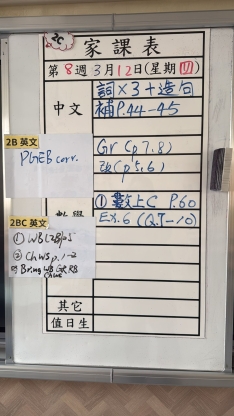 家課表
第8週3月12日(星期四)
中文
詞×3+造句
補P.44-45
2B 英文
PGEB corr.
Gr (p7.8)
改(p5,6)
2BC 英文
① WB(2B)p5
② Ch W5 p.1-2
Bring WB GR RB
數學
① 數上C P.60
Ex.6 (Q.7-10)
其它
值日生